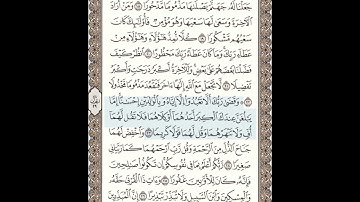 جَعَلْنَا لَهُۥ جَهَنَّمَ يَصْلَىٰهَا مَذْمُومًا مَّدْحُورًا ۝١٨ وَمَنْ أَرَادَ
ٱلْـَٔاخِرَةَ وَسَعَىٰ لَهَا سَعْيَهَا وَهُوَ مُؤْمِنٌ فَأُو۟لَـٰٓئِكَ كَانَ
سَعْيُهُم مَّشْكُورًا ۝١٩ كُلًّا نُّمِدُّ هَـٰٓؤُلَآءِ وَهَـٰٓؤُلَآءِ مِنْ
عَطَآءِ رَبِّكَ ۚ وَمَا كَانَ عَطَآءُ رَبِّكَ مَحْظُورًا ۝٢٠ ٱنظُرْ كَيْفَ
فَضَّلْنَا بَعْضَهُمْ عَلَىٰ بَعْضٍ ۚ وَلَلْـَٔاخِرَةُ أَكْبَرُ دَرَجَـٰتٍ وَأَكْبَرُ
تَفْضِيلًا ۝٢١ لَّا تَجْعَلْ مَعَ ٱللَّهِ إِلَـٰهًا ءَاخَرَ فَتَقْعُدَ مَذْمُومًا مَّخْذُولًا
۝٢٢ ۞ وَقَضَىٰ رَبُّكَ أَلَّا تَعْبُدُوٓا۟ إِلَّآ إِيَّاهُ وَبِٱلْوَٰلِدَيْنِ إِحْسَـٰنًا ۚ إِمَّا
يَبْلُغَنَّ عِندَكَ ٱلْكِبَرَ أَحَدُهُمَآ أَوْ كِلَاهُمَا فَلَا تَقُل لَّهُمَآ
أُفٍّ وَلَا تَنْهَرْهُمَا وَقُل لَّهُمَا قَوْلًا كَرِيمًا ۝٢٣ وَٱخْفِضْ لَهُمَا
جَنَاحَ ٱلذُّلِّ مِنَ ٱلرَّحْمَةِ وَقُل رَّبِّ ٱرْحَمْهُمَا كَمَا رَبَّيَانِى
صَغِيرًا ۝٢٤ رَّبُّكُمْ أَعْلَمُ بِمَا فِى نُفُوسِكُمْ ۚ إِن تَكُونُوا۟ صَـٰلِحِينَ
فَإِنَّهُۥ كَانَ لِلْأَوَّٰبِينَ غَفُورًا ۝٢٥ وَءَاتِ ذَا ٱلْقُرْبَىٰ حَقَّهُۥ
وَٱلْمِسْكِينَ وَٱبْنَ ٱلسَّبِيلِ وَلَا تُبَذِّرْ تَبْذِيرًا ۝٢٦ إِنَّ ٱلْمُبَذِّرِينَ